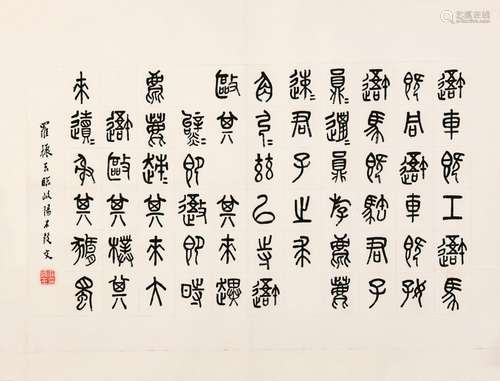 吾車既工吾馬
既同吾車既好
吾馬既駐君子
員邋員斿麀鹿
速君子之求
角弓茲以寺吾
敺其其來趩
即即時
麀鹿趚其來大
吾敺其樸其
來遺射其豣蜀
羅振玉臨岐陽石鼓文